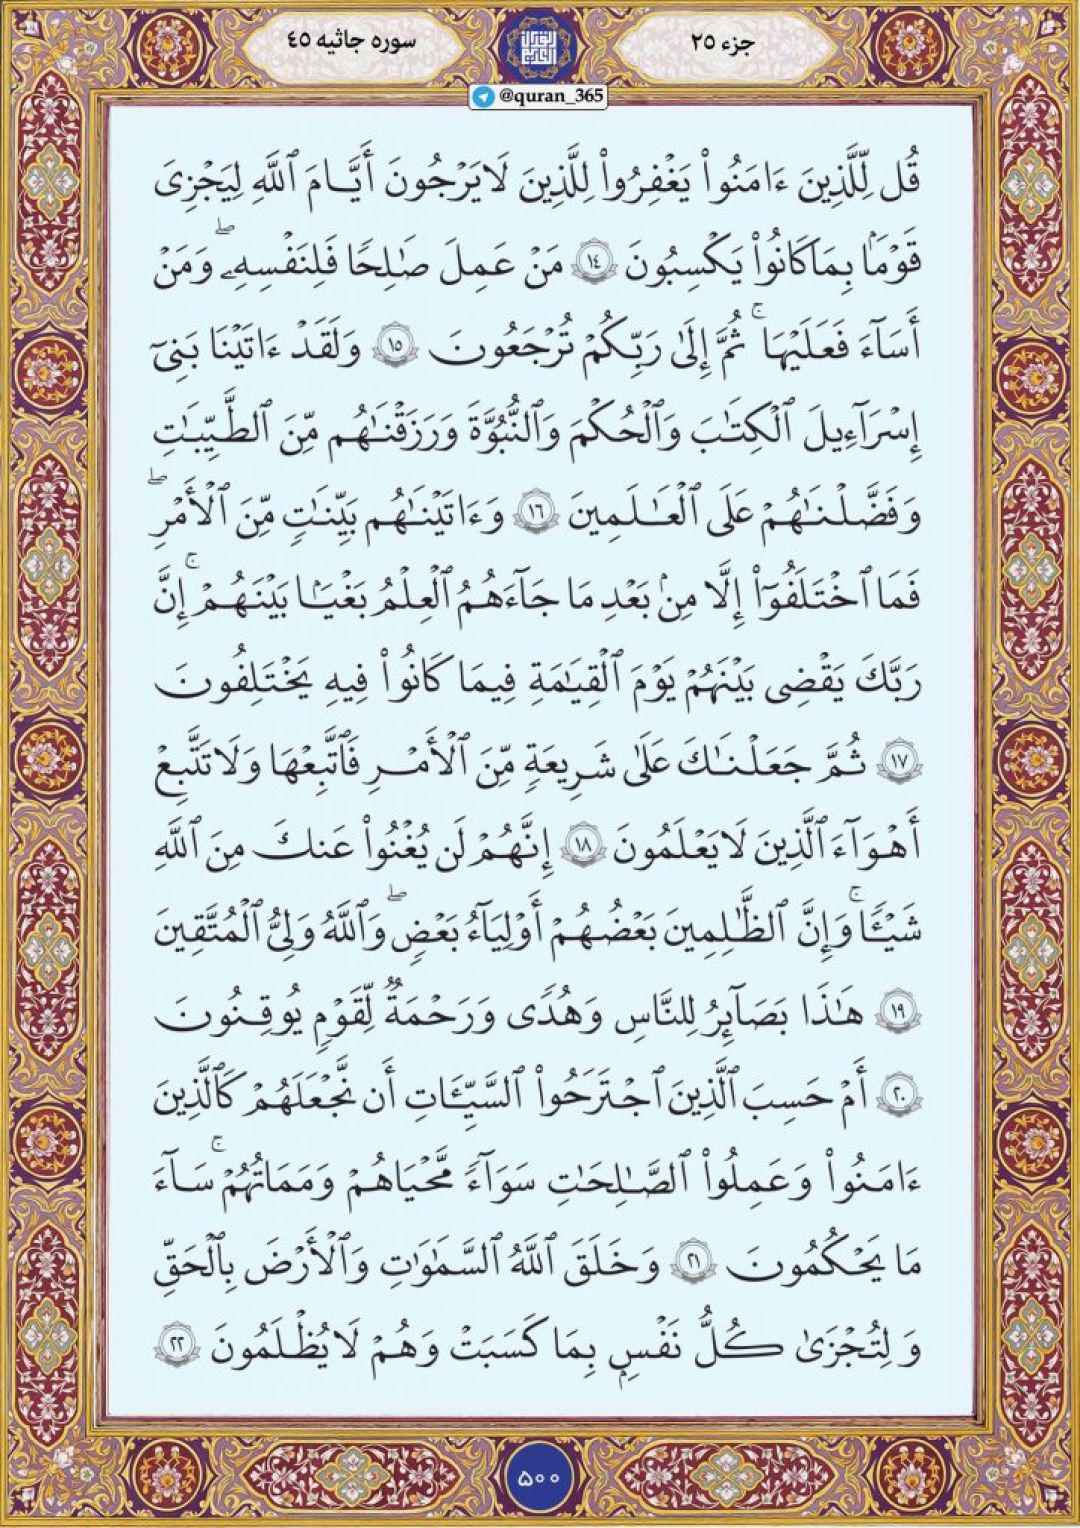 جزء ۲۵
سوره جاثیه ۴۵
@quran_365
قُل لِّلَّذِينَ ءَامَنُوا۟ يَغْفِرُوا۟ لِلَّذِينَ لَايَرْجُونَ أَيَّامَ ٱللَّهِ لِيَجْزِىَ
قَوْمَۢا بِمَاكَانُوا۟ يَكْسِبُونَ ١٤ مَنْ عَمِلَ صَٰلِحًا فَلِنَفْسِهِۦۖ وَمَنْ
أَسَآءَ فَعَلَيْهَاۚ ثُمَّ إِلَىٰ رَبِّكُمْ تُرْجَعُونَ ١٥ وَلَقَدْ ءَاتَيْنَا بَنِىٓ
إِسْرَآءِيلَ ٱلْكِتَٰبَ وَٱلْحُكْمَ وَٱلنُّبُوَّةَ وَرَزَقْنَٰهُم مِّنَ ٱلطَّيِّبَٰتِ
وَفَضَّلْنَٰهُمْ عَلَى ٱلْعَٰلَمِينَ ١٦ وَءَاتَيْنَٰهُم بَيِّنَٰتٍ مِّنَ ٱلْأَمْرِۖ
فَمَا ٱخْتَلَفُوٓا۟ إِلَّا مِنۢ بَعْدِ مَا جَآءَهُمُ ٱلْعِلْمُ بَغْيَۢا بَيْنَهُمْۚ إِنَّ
رَبَّكَ يَقْضِى بَيْنَهُمْ يَوْمَ ٱلْقِيَٰمَةِ فِيمَا كَانُوا۟ فِيهِ يَخْتَلِفُونَ
١٧ ثُمَّ جَعَلْنَٰكَ عَلَىٰ شَرِيعَةٍ مِّنَ ٱلْأَمْرِ فَٱتَّبِعْهَا وَلَاتَتَّبِعْ
أَهْوَآءَ ٱلَّذِينَ لَايَعْلَمُونَ ١٨ إِنَّهُمْ لَن يُغْنُوا۟ عَنكَ مِنَ ٱللَّهِ
شَيْـًٔاۚ وَإِنَّ ٱلظَّٰلِمِينَ بَعْضُهُمْ أَوْلِيَآءُ بَعْضٍۖ وَٱللَّهُ وَلِىُّ ٱلْمُتَّقِينَ
١٩ هَٰذَا بَصَٰٓئِرُ لِلنَّاسِ وَهُدًى وَرَحْمَةٌ لِّقَوْمٍ يُوقِنُونَ
٢٠ أَمْ حَسِبَ ٱلَّذِينَ ٱجْتَرَحُوا۟ ٱلسَّيِّـَٔاتِ أَن نَّجْعَلَهُمْ كَٱلَّذِينَ
ءَامَنُوا۟ وَعَمِلُوا۟ ٱلصَّٰلِحَٰتِ سَوَآءً مَّحْيَاهُمْ وَمَمَاتُهُمْۚ سَآءَ
مَا يَحْكُمُونَ ٢١ وَخَلَقَ ٱللَّهُ ٱلسَّمَٰوَٰتِ وَٱلْأَرْضَ بِٱلْحَقِّ
وَلِتُجْزَىٰ كُلُّ نَفْسٍۭ بِمَا كَسَبَتْ وَهُمْ لَايُظْلَمُونَ ٢٢
۵۰۰